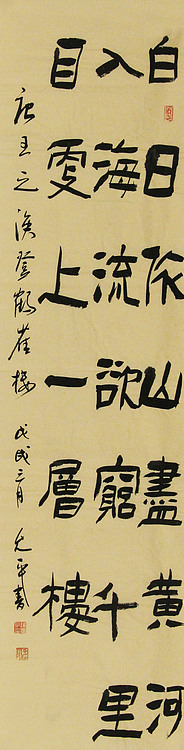 白日依山盡黃河
入海流欲窮千里
目更上一層樓
唐王之渙登鶴雀樓 戊戌三月 平書